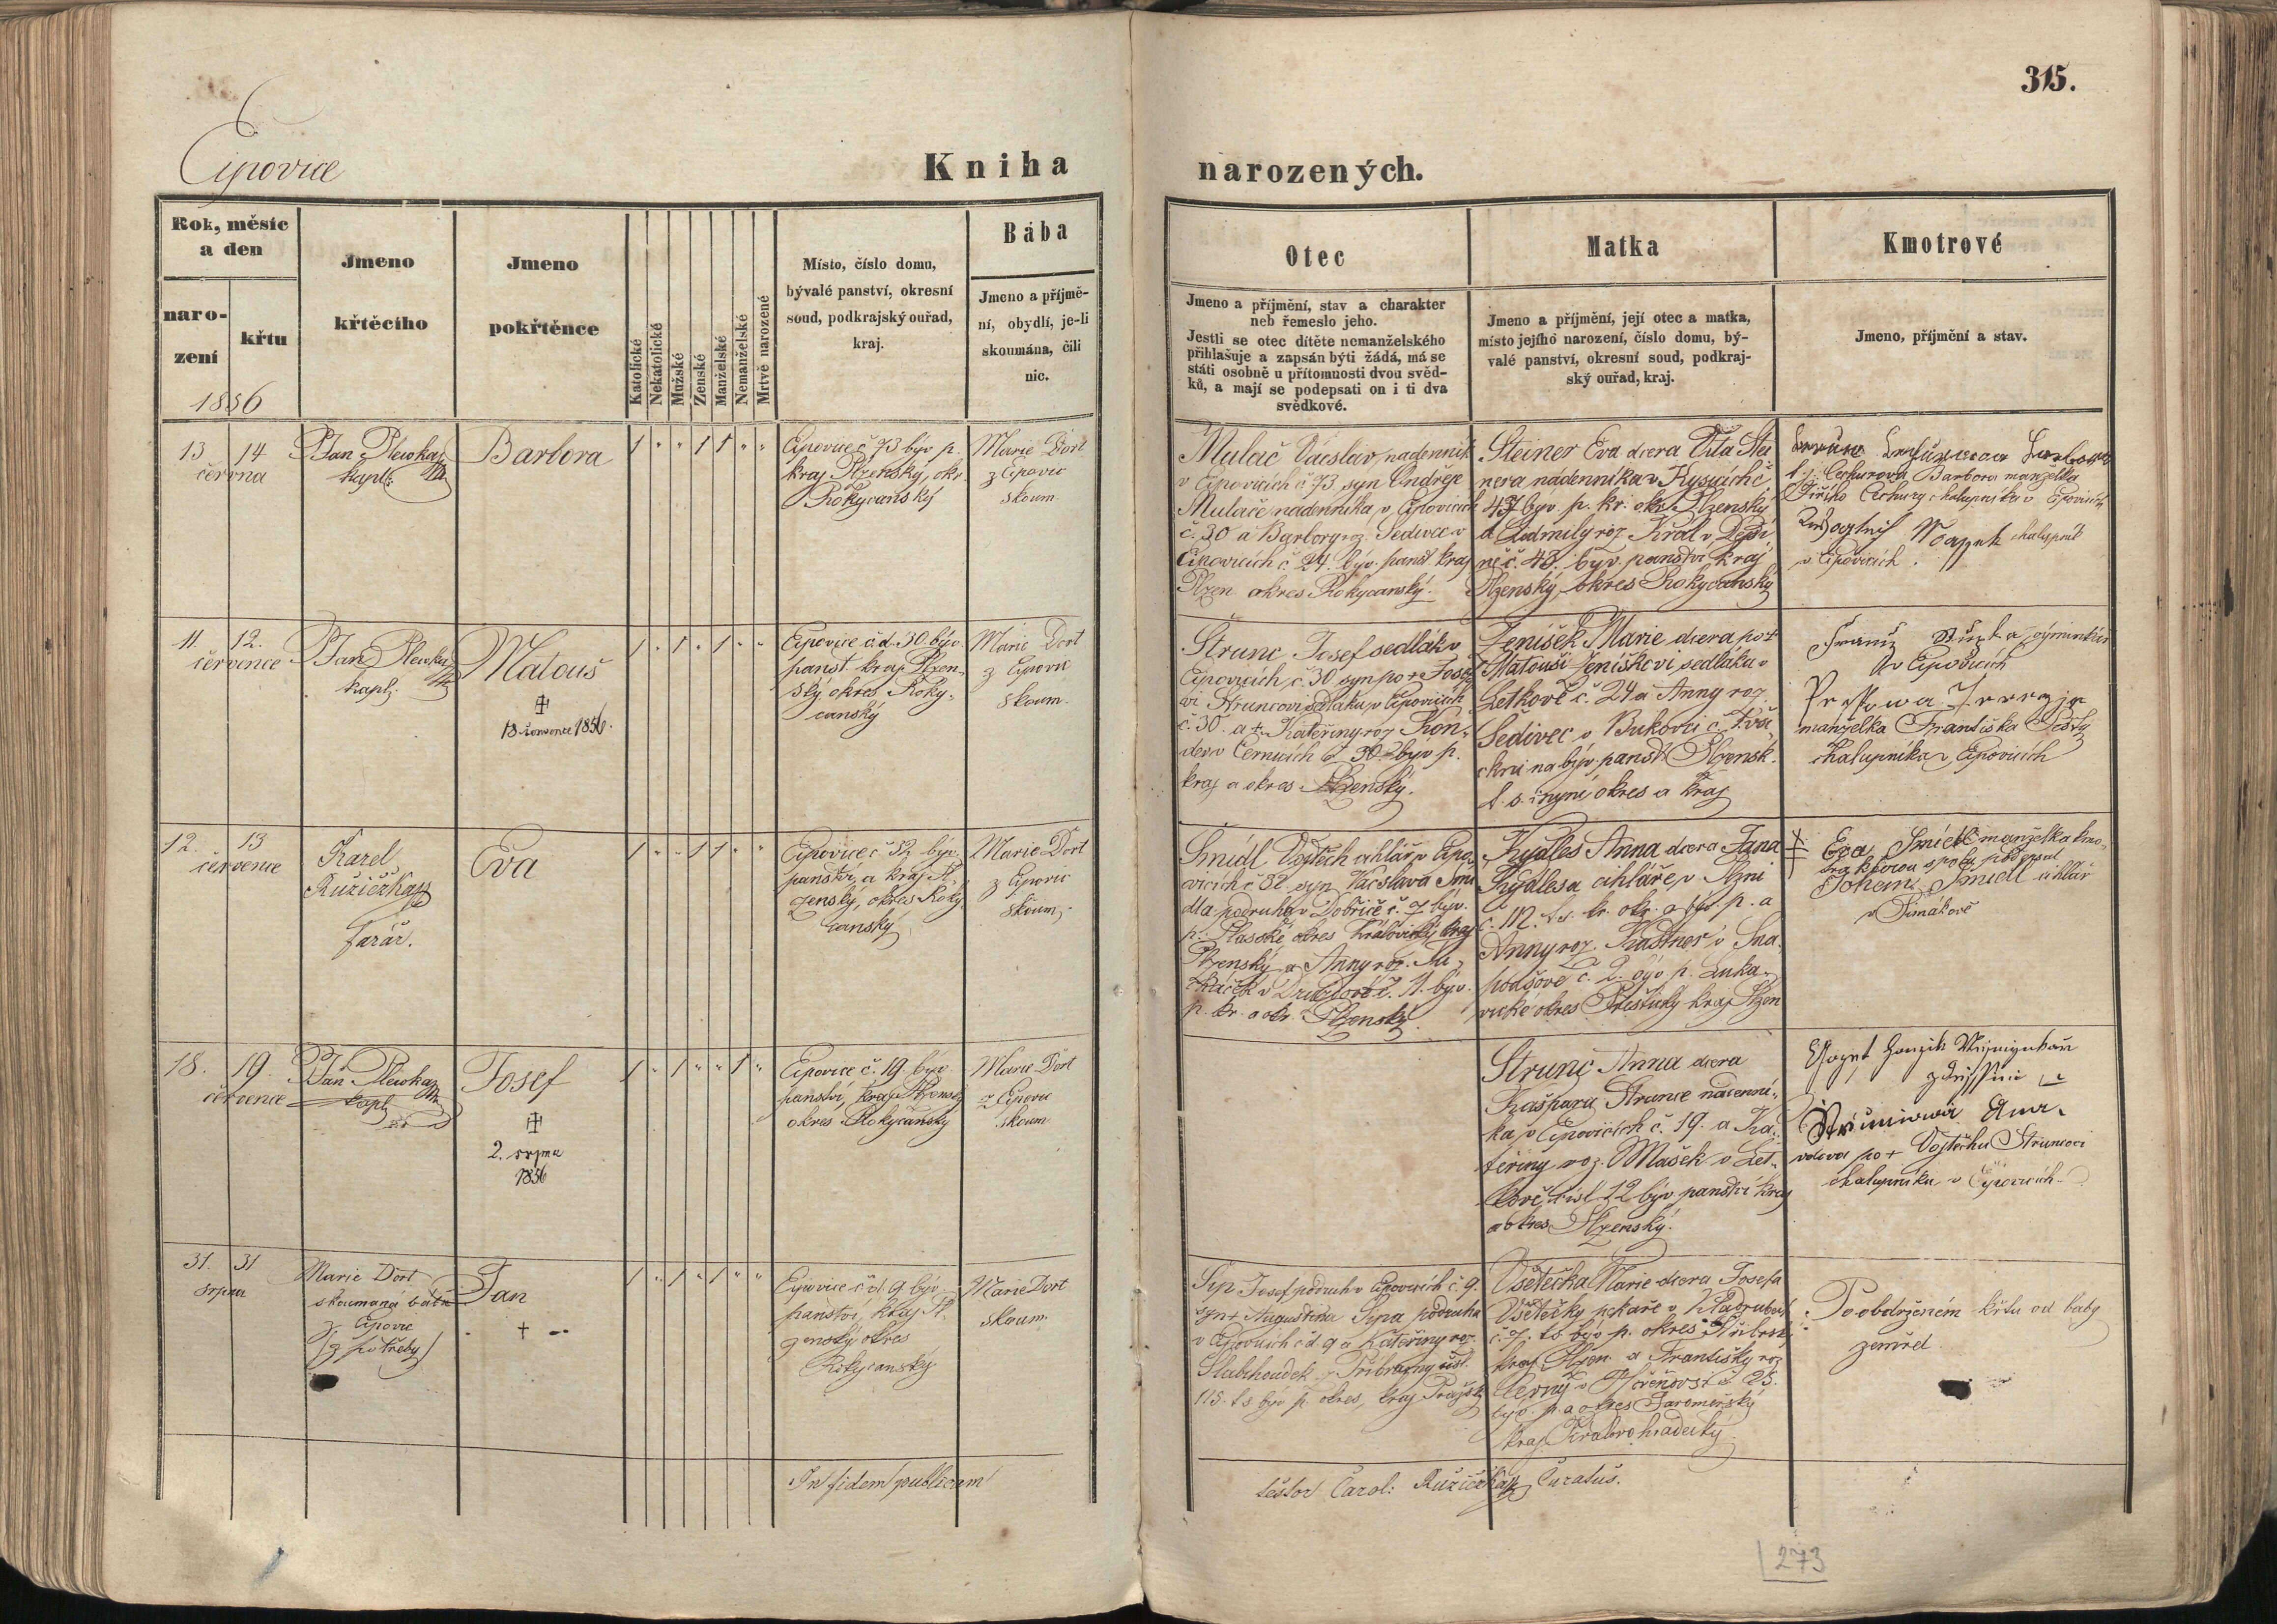 315.
Ejpovice
Kniha narozených.
Rok, měsíc
a den
naro-
zení
křtu
1856
Jmeno
křtěcího
Jmeno
pokřtěnce
Katolické
Nekatolické
Mužské
Zenské
Manželské
Nemanželské
Mrtvě narozené
Místo, číslo domu,
bývalé panství, okresní
soud, podkrajský ouřad,
kraj.
Bába
Jmeno a příjmě-
ní, obydlí, je-li
skoumána, čili
nic.
Otec
Jmeno a příjmění, stav a charakter
neb řemeslo jeho.
Jestli se otec dítěte nemanželského
přihlašuje a zapsán býti žádá, má se
státi osobně u přítomnosti dvou svěd-
ků, a mají se podepsati on i ti dva
svědkové.
Matka
Jmeno a příjmění, její otec a matka,
místo jejího narození, číslo domu, bý-
valé panství, okresní soud, podkraj-
ský ouřad, kraj.
Kmotrové
Jmeno, příjmění a stav.
13 14
června
Jan Plewka
kapl.
Barbora
1 " " 1 1 " "
Ejpovice č 73 býv p.
kraj Plzenský, okr.
Rokycanský
Marie Dort
z Ejpovic
skoum.
Mulač Václav nadenník
v Ejpovicích č 73 syn Ondřeje
Mulače nadenníka v Ejpovicích
č. 30 a Barbory roz. Sedivec v
Ejpovicích č 24. býv. panst kraj
Plzen okres Rokycanský.
Steiner Eva dcera Víta Stei
nera nádenníka v Kyšicích č.
43 býv. p. kr. okr. Plzenský
a Ludmily roz Král v Dejši
ně č. 48. býv. panství kraj
Plzenský, okres Rokycanský
Cechurova Barbora manželka
Jiřího Cechury chalupníka v Ejpovicích
chalupník
v Ejpovicích.
11. 12.
července
Jan Plewka
kapl.
Matouš
18 července 1856.
1 " 1 " 1 " "
Ejpovice č.d. 30. býv.
panst. kraj Plzen-
ský okres Roky-
canský
Marie Dort
z Ejpovic
skoum.
Strunc Josef sedlák v
Ejpovicích, č. 30 syn po + Josef
ovi Struncovi sedláku v Ejpovicích
č. 30. a + Kateřiny roz
v Černicích č 30 býv p.
kraj a okres Plzenský.
Ženíšek Marie dcera po +
Matouši Ženíškovi sedláku v
Letkově č. 24 a Anny roz
Šedivec v Bukovci č.
na býv panst. Plzensk.
t. s. i nyní okres a kraj
Franz
v Ejpovicích
manželka Františka
chalupníka v Ejpovicích
12. 13
července
Karel
Růžička
farář.
Eva
1 " " 1 1 " "
Ejpovice č 32 býv.
panství, a kraj Pl-
zenský, okres Roky
canský
Marie Dort
z Ejpovic
skoum.
Šmídl Vojtěch cihlář v Ejpo-
vicích č 32. syn Václava Šmí
dla podruha v Dobřiči č. 7 býv.
p. Plasské, okres Královický kraj
Plzenský a Anny roz.
č. 11. býv.
p. kr. a okr. Plzenský.
Kydles Anna dcera Jana
Kydlesa cihláře v Plzni
č. 112. t. s. kr. okr. a býv. p. a
Anny roz. Kastner v Sna
podšově č. 2. býv p. Luka-
vické okres Přeštický kraj Plzen
Eva Šmiedl manželka
Johann Šmiedl cihlář
18. 19.
července
Jan Plewka
kapl.
Josef
2. srpna
1856
1 " 1 " " 1 "
Ejpovice č. 19. býv.
panství, kraj Plzenský
okres Rokycanský
Marie Dort
z Ejpovic
skoum
Strunc Anna dcera
Kašpara Strunce nádenní-
ka v Ejpovicích č. 19. a Ka-
teřiny roz. Mašek v Let-
kově čísl 12 býv panství kraj
a okres Plzenský.
vdova po + Vojtěchu Struncovi
chalupníku v Ejpovicích
31. 31
srpna
Marie Dort
skoumaná bába
z Ejpovic
(z potřeby)
Jan
†
1 " 1 " 1 " "
Ejpovice č.d. 9. býv
panství, kraj Pl-
zenský okres
Rokycanský
Marie Dort
skoum.
Síp Josef podruh v Ejpovicích č. 9.
syn + Augustina Sípa podruha
v Ejpovicích č.d. 9 a Kateřiny roz.
Slabihoudek z Příbrami čísl.
115. t s býv p. okres, kraj Pražský
Všetečka Marie dcera Josefa
Všetečky pekaře v Kladrubech
č. 7. t. s býv p. okres Stříbrský
kraj Plzen. a Františky roz
Černý v Hořeňovsi č 25.
býv. p. a okres Jaroměřský
kraj Králohradecký.
Po obdrženém křtu od báby
zemřel.
In fidem publicam
testor Carol: Růžička Curatus.
273